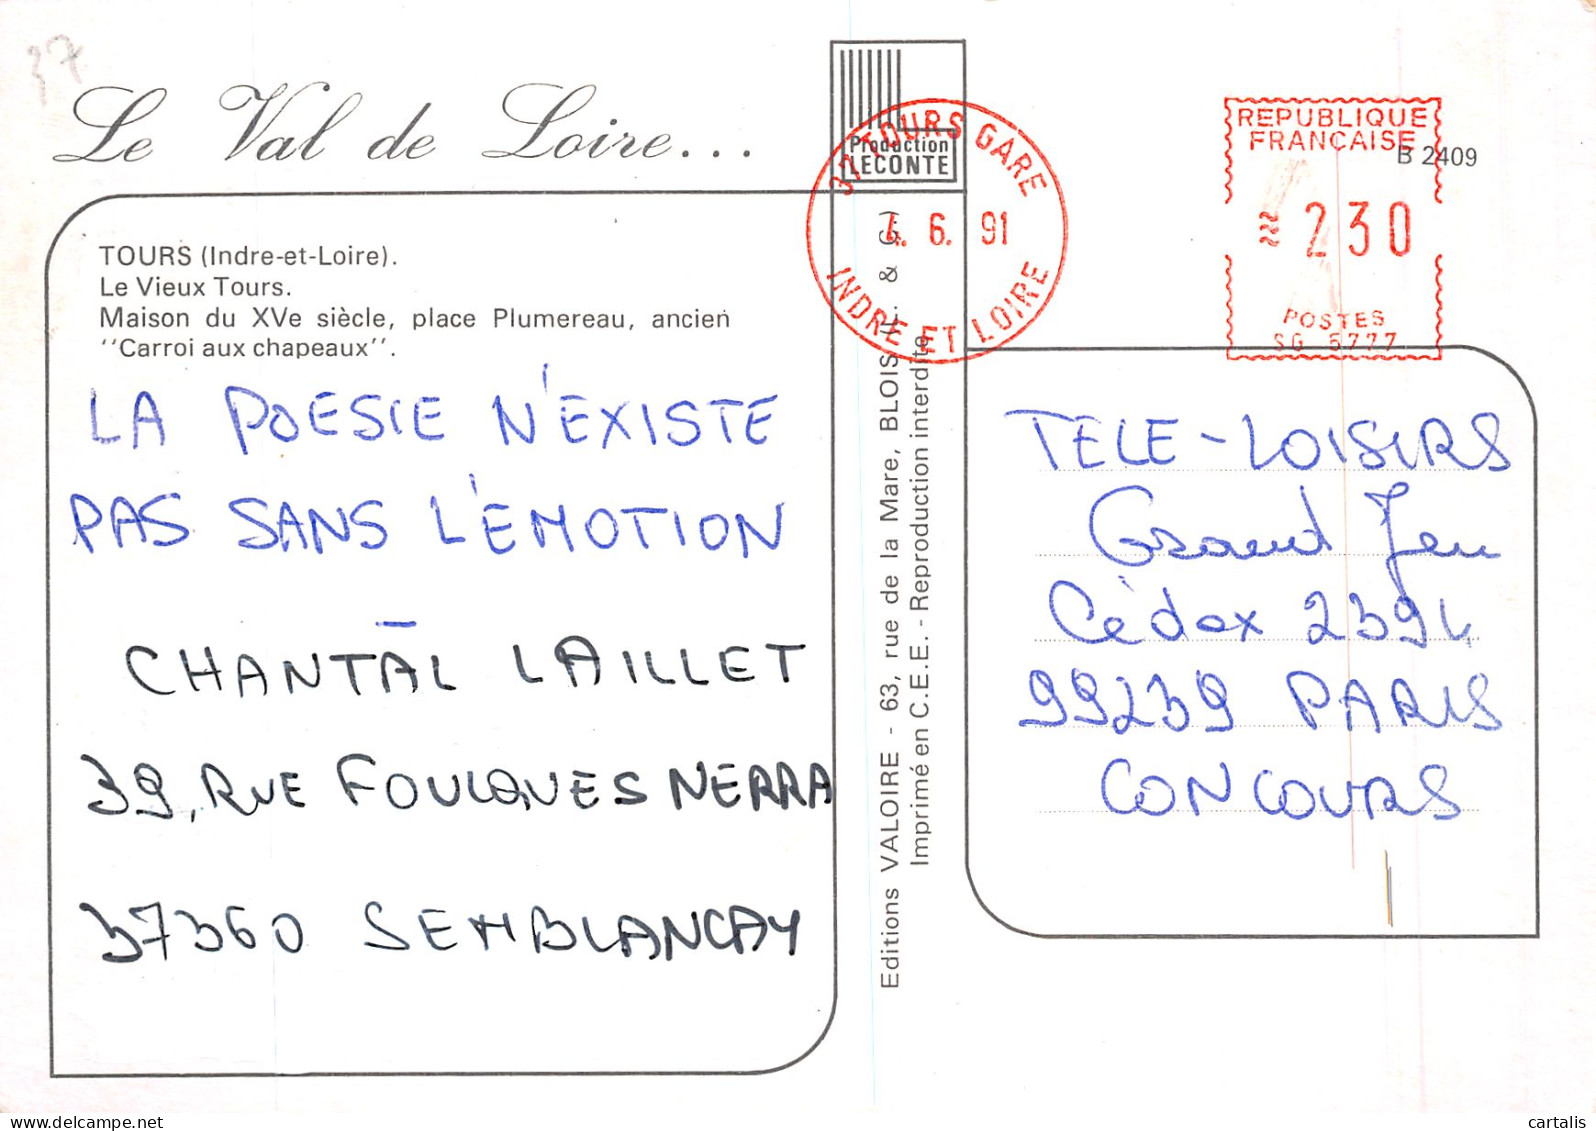 37
Le Val de Loire...
Production
LECONTE
37 TOURS GARE
4. 6. 91
INDRE ET LOIRE
REPUBLIQUE
FRANCAISE
B 2409
230
POSTES
SG 5777
TOURS (Indre-et-Loire).
Le Vieux Tours.
Maison du XVe siècle, place Plumereau, ancien
"Carroi aux chapeaux".
LA POESIE N'EXISTE
PAS SANS L'EMOTION
CHANTAL LAILLET
39, RUE FOULQUES NERRA
37360 SEMBLANCAY
Editions VALOIRE - 63, rue de la Mare, BLOIS & G.)
Imprimé en C.E.E. - Reproduction interdite
TELE-LOISIRS
Grand Jeu
Cédex 2394
99239 PARIS
CONCOURS
cartalis